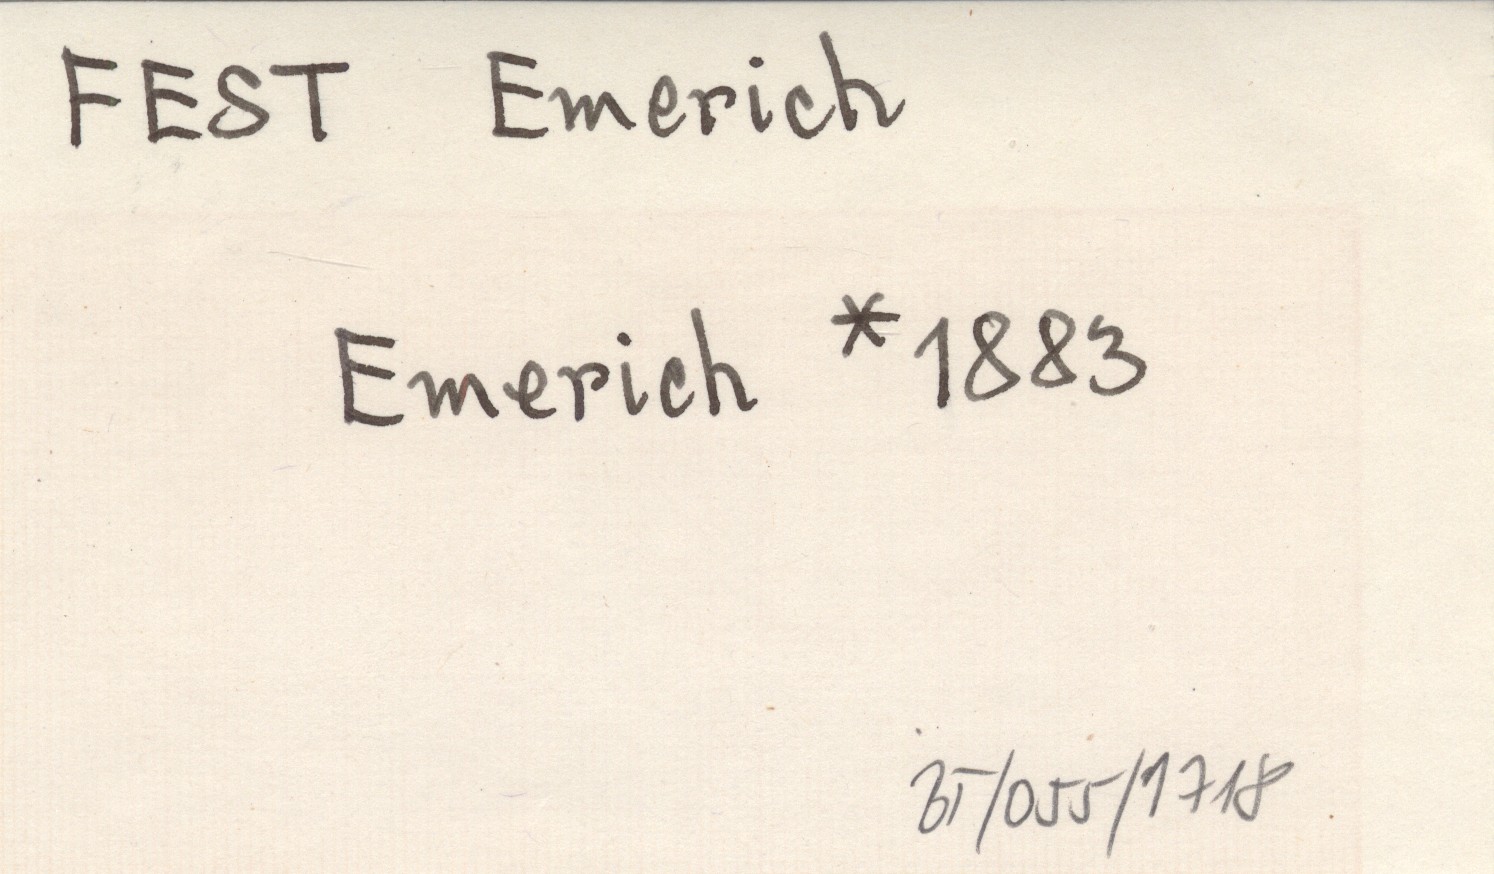 FEST Emerich
Emerich *1883
35/055/1718